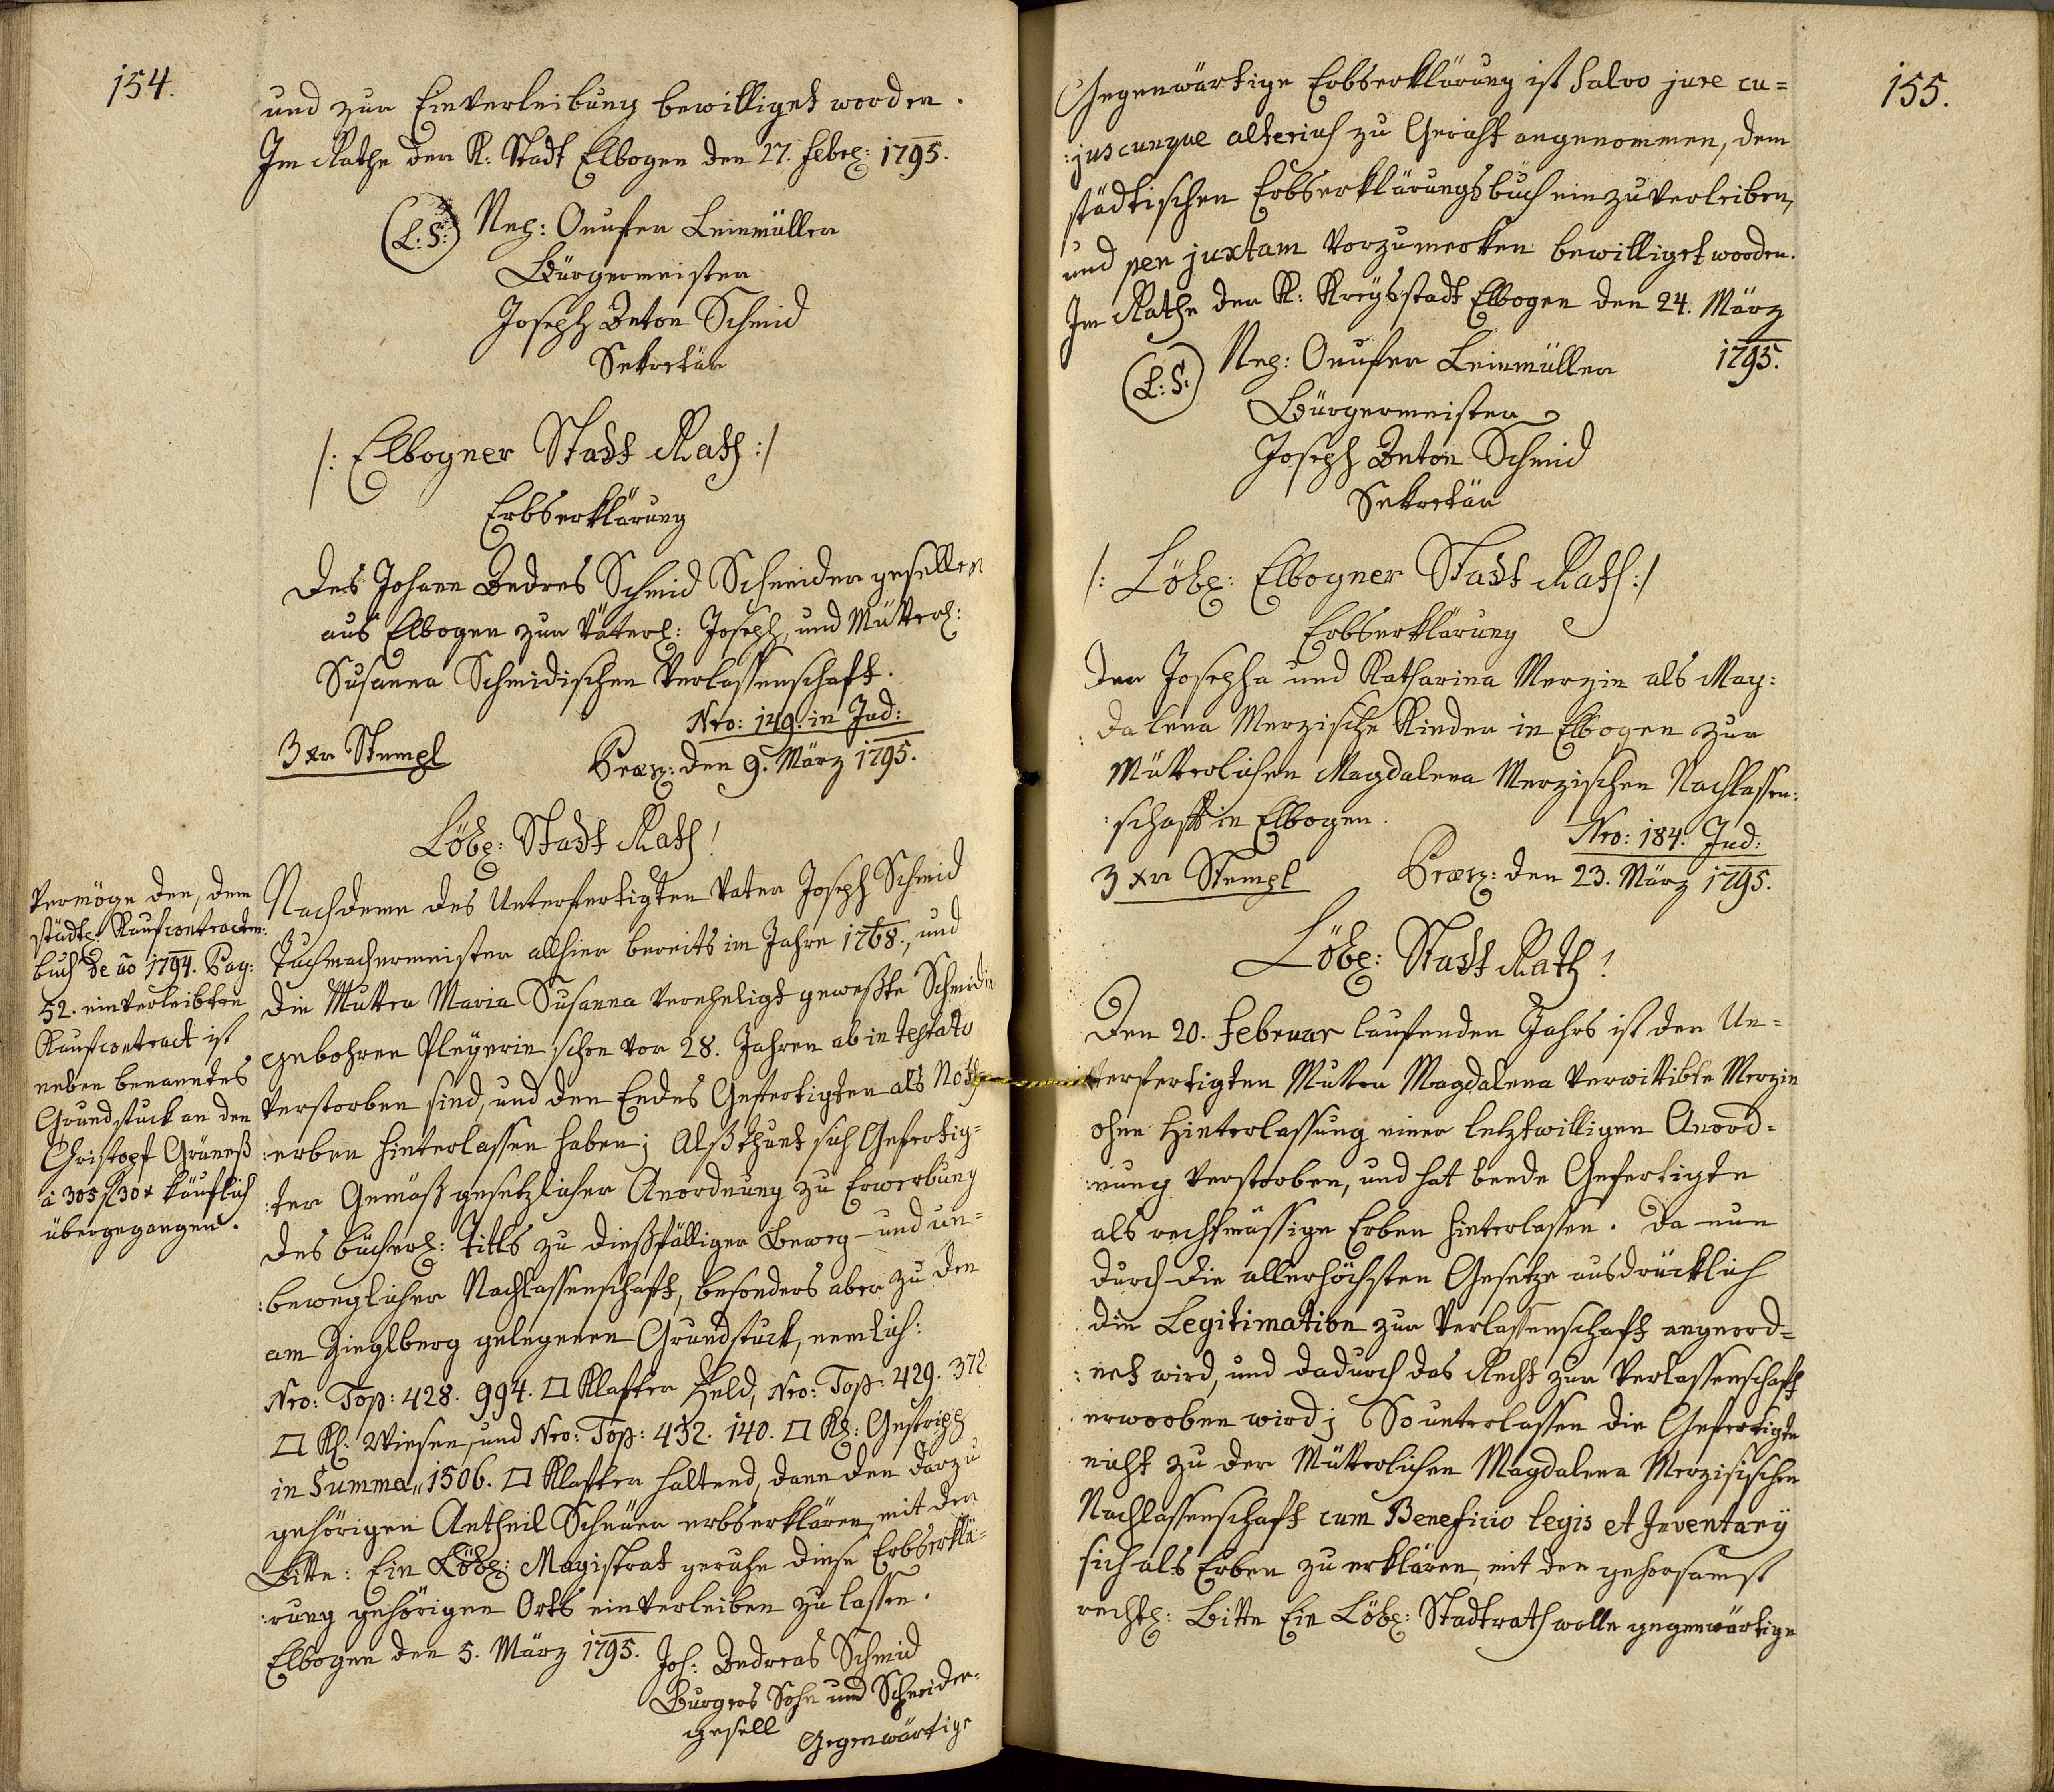 154.
und zur Einverleibung bewilliget worden.
Im Rathe der K: Stadt Elbogen den 27. Febrl: 1795.
(L:S:) Nep: Onufer Leinmüller
Bürgermeister
Joseph Anton Schmid
Sekretär
/: Elbogner Stadt Rath :/
Erbserklärung
Des Johann Andres Schmid Schneider gesellen
aus Elbogen zur Väterl: Joseph, und Mütterl:
Susanna Schmidischen Verlassenschaft.
Nro: 149. in Jud:
3 xr Stempl
Præs: den 9. März 1795.
Löbl: Stadt Rath!
Nachdeme des Unterfertigten Vater Joseph Schmid
Tuchmachermeister allhier bereits im Jahre 1768., und
die Mutter Maria Susanna verehligt geweßte Schmidin
gebohrne Pleyerin schon vor 28. Jahren ab intestato
verstorben sind, und den Endes Gefertigten als Noth
:erben hinterlassen haben; Alß thuet sich Gefertig=
:ter Gemäß gesetzlicher Anordnung zu Erwerbung
des bücherl: Titls zu dießfälliger Beweg- und un=
:beweglicher Nachlassenschaft, besonders aber zu den
am Zieglberg gelegenen Grundstuck, nemlich:
Nro: Top: 428. 994. □ Klafter Feld, Nro: Top: 429. 372.
□ Kl: Wiesen, und Nro: Top: 432. 140. □ Kl: Gestripp
in Summa „ 1506. □ Klafter haltend, dann den darzu
gehörigen Antheil Scheüer erbserklären, mit der
Bitte: Ein Löbl: Magistrat geruhe diese Erbserklä=
:rung gehörigen Orts einverleiben zu lassen.
Elbogen den 5. März 1795.
Joh: Andreas Schmid
Burgers Sohn und Schneider-
gesell
Gegenwärtige
Vermöge den, dem
städtl: Kaufcontracten:
buch de aõ 1794. Pag:
52. einverleibten
Kaufcontract ist
neben benanntes
Grundstuck an den
Christopf Grüneß
à 305 f 30 x käuflich
übergegangen.
155.
Gegenwärtige Erbserklärung ist Salvo jure cu=
:juscunque alterius zu Gericht angenommen, dem
städtischen Erbserklärungsbuch einzuverleiben,
und per juxtam vorzumerken bewilliget worden.
Im Rathe der K: Kreysstadt Elbogen den 24. März
1795.
(L:S:) Nep: Onufer Leinmüller
Bürgermeister
Joseph Anton Schmid
Sekretär
/: Löbl: Elbogner Stadt Rath :/
Erbserklärung
Der Josepha und Katharina Merzin als Mag:
:dalena Merzische Kinder in Elbogen zur
Mütterlichen Magdalena Merzischen Nachlassen:
:schaft in Elbogen.
Nro: 184. Jud:
3 xr Stempl
Præs: den 23. März 1795.
Löbl: Stadt Rath!
Den 20. Februar laufenden Jahrs ist der Un=
terfertigten Mutter Magdalena verwittibte Merzin
ohne Hinterlassung einer letztwilligen Anord=
:nung verstorben, und hat beede Gefertigte
als rechtmässige Erben hinterlassen. Da nun
durch die allerhöchsten Gesetze ausdrücklich
die Legitimation zur Verlassenschaft angeord=
:net wird, und dadurch das Recht zur Verlassenschaft
erworben wird; So unterlassen die Gefertigte
nicht zu der Mütterlichen Magdalena Merzisischen
Nachlassenschaft cum Beneficio legis et Inventarÿ
sich als Erben zu erklären, mit der gehorsamst
rechtl: Bitte Ein Löbl: Stadtrath wolle gegenwärtige